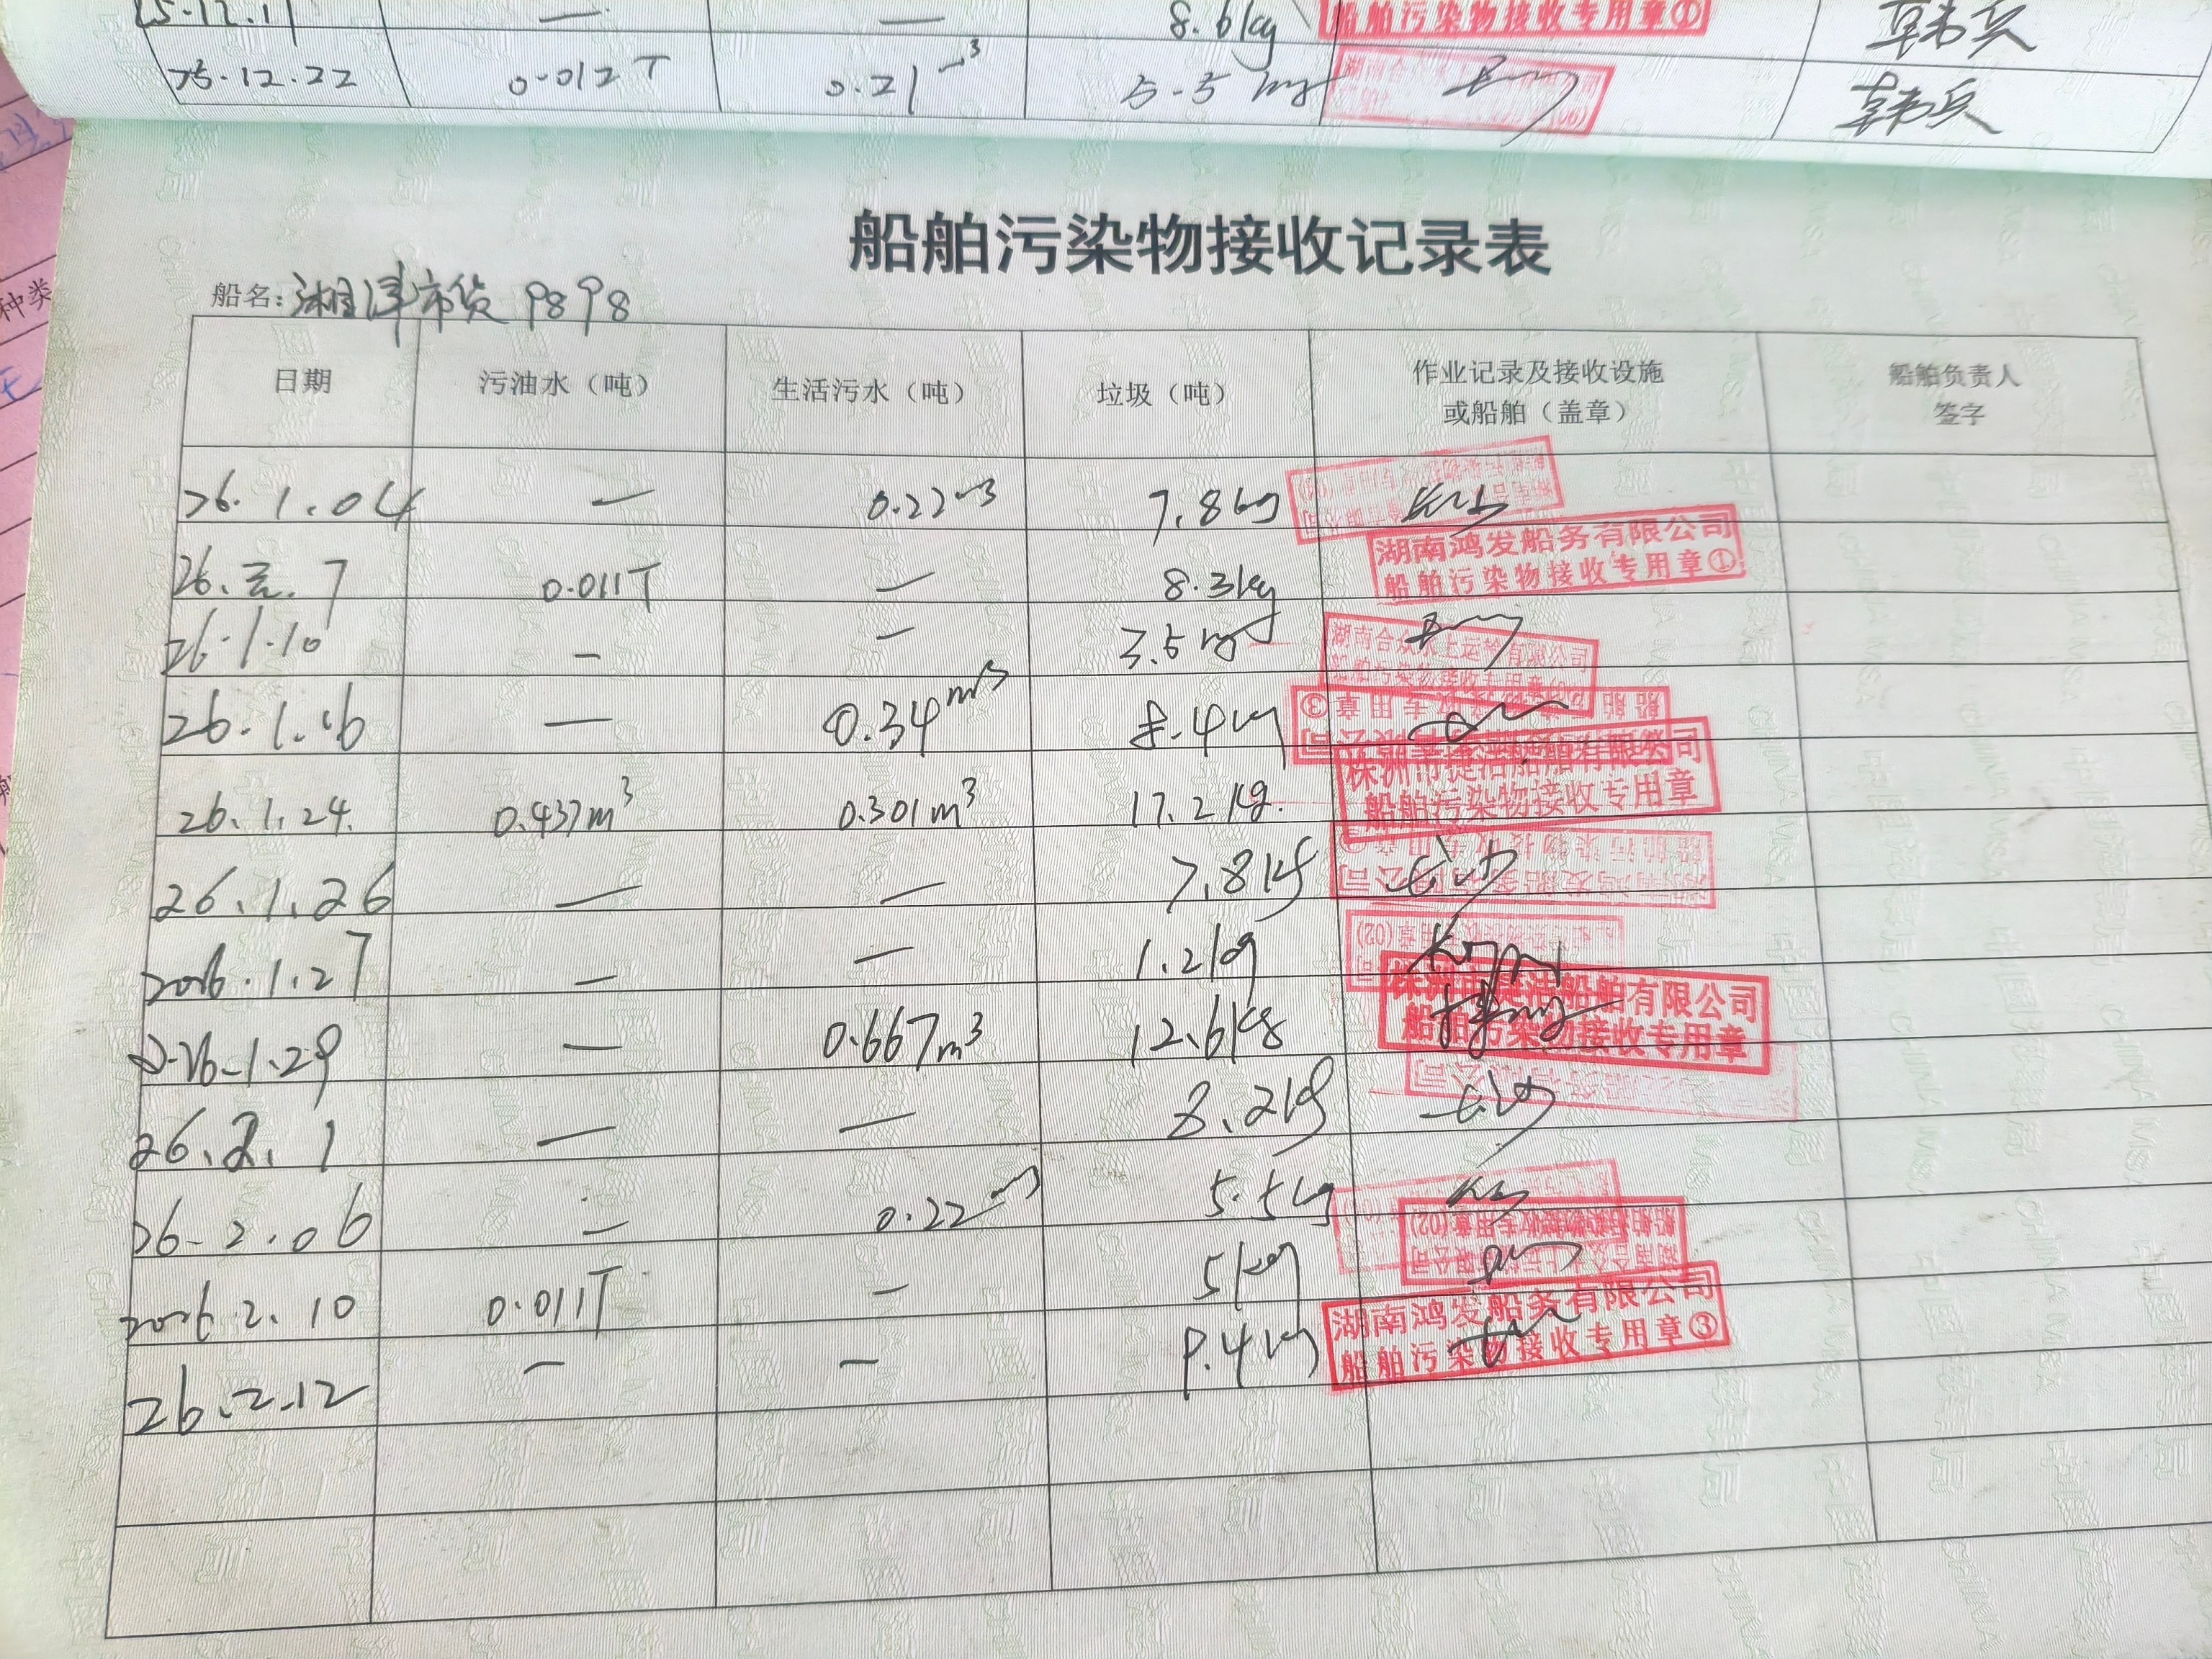 25.12.1 — — 8.6kg 船舶污染物接收专用章① 韩兵
25.12.22 0.012T 0.21m³ 5.5kg 韩兵
船舶污染物接收记录表
船名: 湘津市货9898
日期 污油水（吨） 生活污水（吨） 垃圾（吨） 作业记录及接收设施 或船舶（盖章） 船舶负责人 签字
26.1.04 — 0.22m³ 7.8kg
26.元.7 0.011T — 8.3kg 湖南鸿发船务有限公司 船舶污染物接收专用章①
26.1.10 — — 3.5kg 湖南合众水上运输有限公司 船舶污染物接收专用章
26.1.16 — 0.34m³ 8.4kg
26.1.24. 0.437m³ 0.301m³ 17.2kg. 株洲市捷洁船舶有限公司 船舶污染物接收专用章
26.1.26 — — 7.8kg
2026.1.27 — — 1.2kg
26.1.29 — 0.667m³ 12.6kg 株洲市捷洁船舶有限公司 船舶污染物接收专用章
26.2.1 — — 8.2kg
26.2.06 — 0.22m³ 5.5kg
2026.2.10 0.011T — 5kg
26.2.12 — — 9.4kg 湖南鸿发船务有限公司 船舶污染物接收专用章③